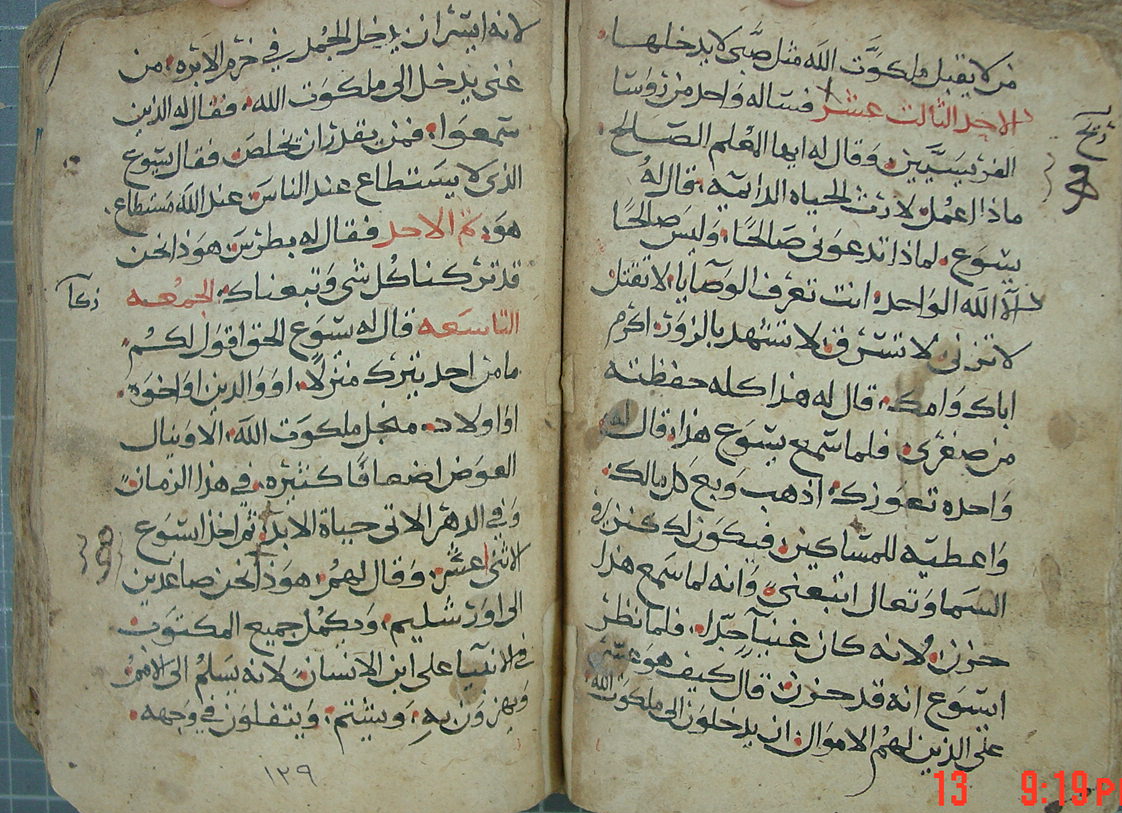 من لا يقبل ملكوت الله مثل صبى لا يدخلها
الاحد الثالث عشر فساله واحد من روسا
الفريسيين وقال له ايها المعلم الصالح
ماذا اعمل لارث الحياه الدايمه قال له
يسوع لماذا تدعونى صالحا وليس صالحا
الا الله الواحد انت تعرف الوصايا لا تقتل
لا تزنى لا تسرق لا تشهد بالزور اكرم
اباك وامك قال له هذا كله حفظته
من صغرى فلما سمع يسوع هذا قال له
واحده تعوزك اذهب وبع كل مالك
واعطيه للمساكين فيكون لك كنز فى
السما وتعال اتبعنى وانه لما سمع هذا
حزن لانه كان غنيا جدا فلما نظر
ايسوع انه قد حزن قال كيف هو عسر
على الذين لهم الاموال ان يدخلون الى ملكوت الله
لانه ايسر ان يدخل الجمل فى خرم الابره من
غنى يدخل الى ملكوت الله فقال له الذين
سمعوا فمن يقدر ان يخلص فقال يسوع
الذى لا يستطاع عند الناس عند الله مستطاع
هو تم الاحد فقال له بطرس هوذا نحن
قد تركنا كل شى وتبعناك الجمعه
التاسعه قال له يسوع الحق اقول لكم
ما من احد يترك منزلا او والدين او اخوه
او اولاد من اجل ملكوت الله الا وينال
العوض اضعافا كثيره فى هذا الزمان
وفى الدهر الاتى حياة الابد ثم اخذ ايسوع
الاثنى اعشر وقال لهم هوذا نحن صاعدين
الى اورشليم ويكمل جميع المكتوب
فى الانبيا على ابن الانسان لانه يسلم الى الامم
ويهزون به ويشتم ويتفلون فى وجهه
١٢٩
13 9:19